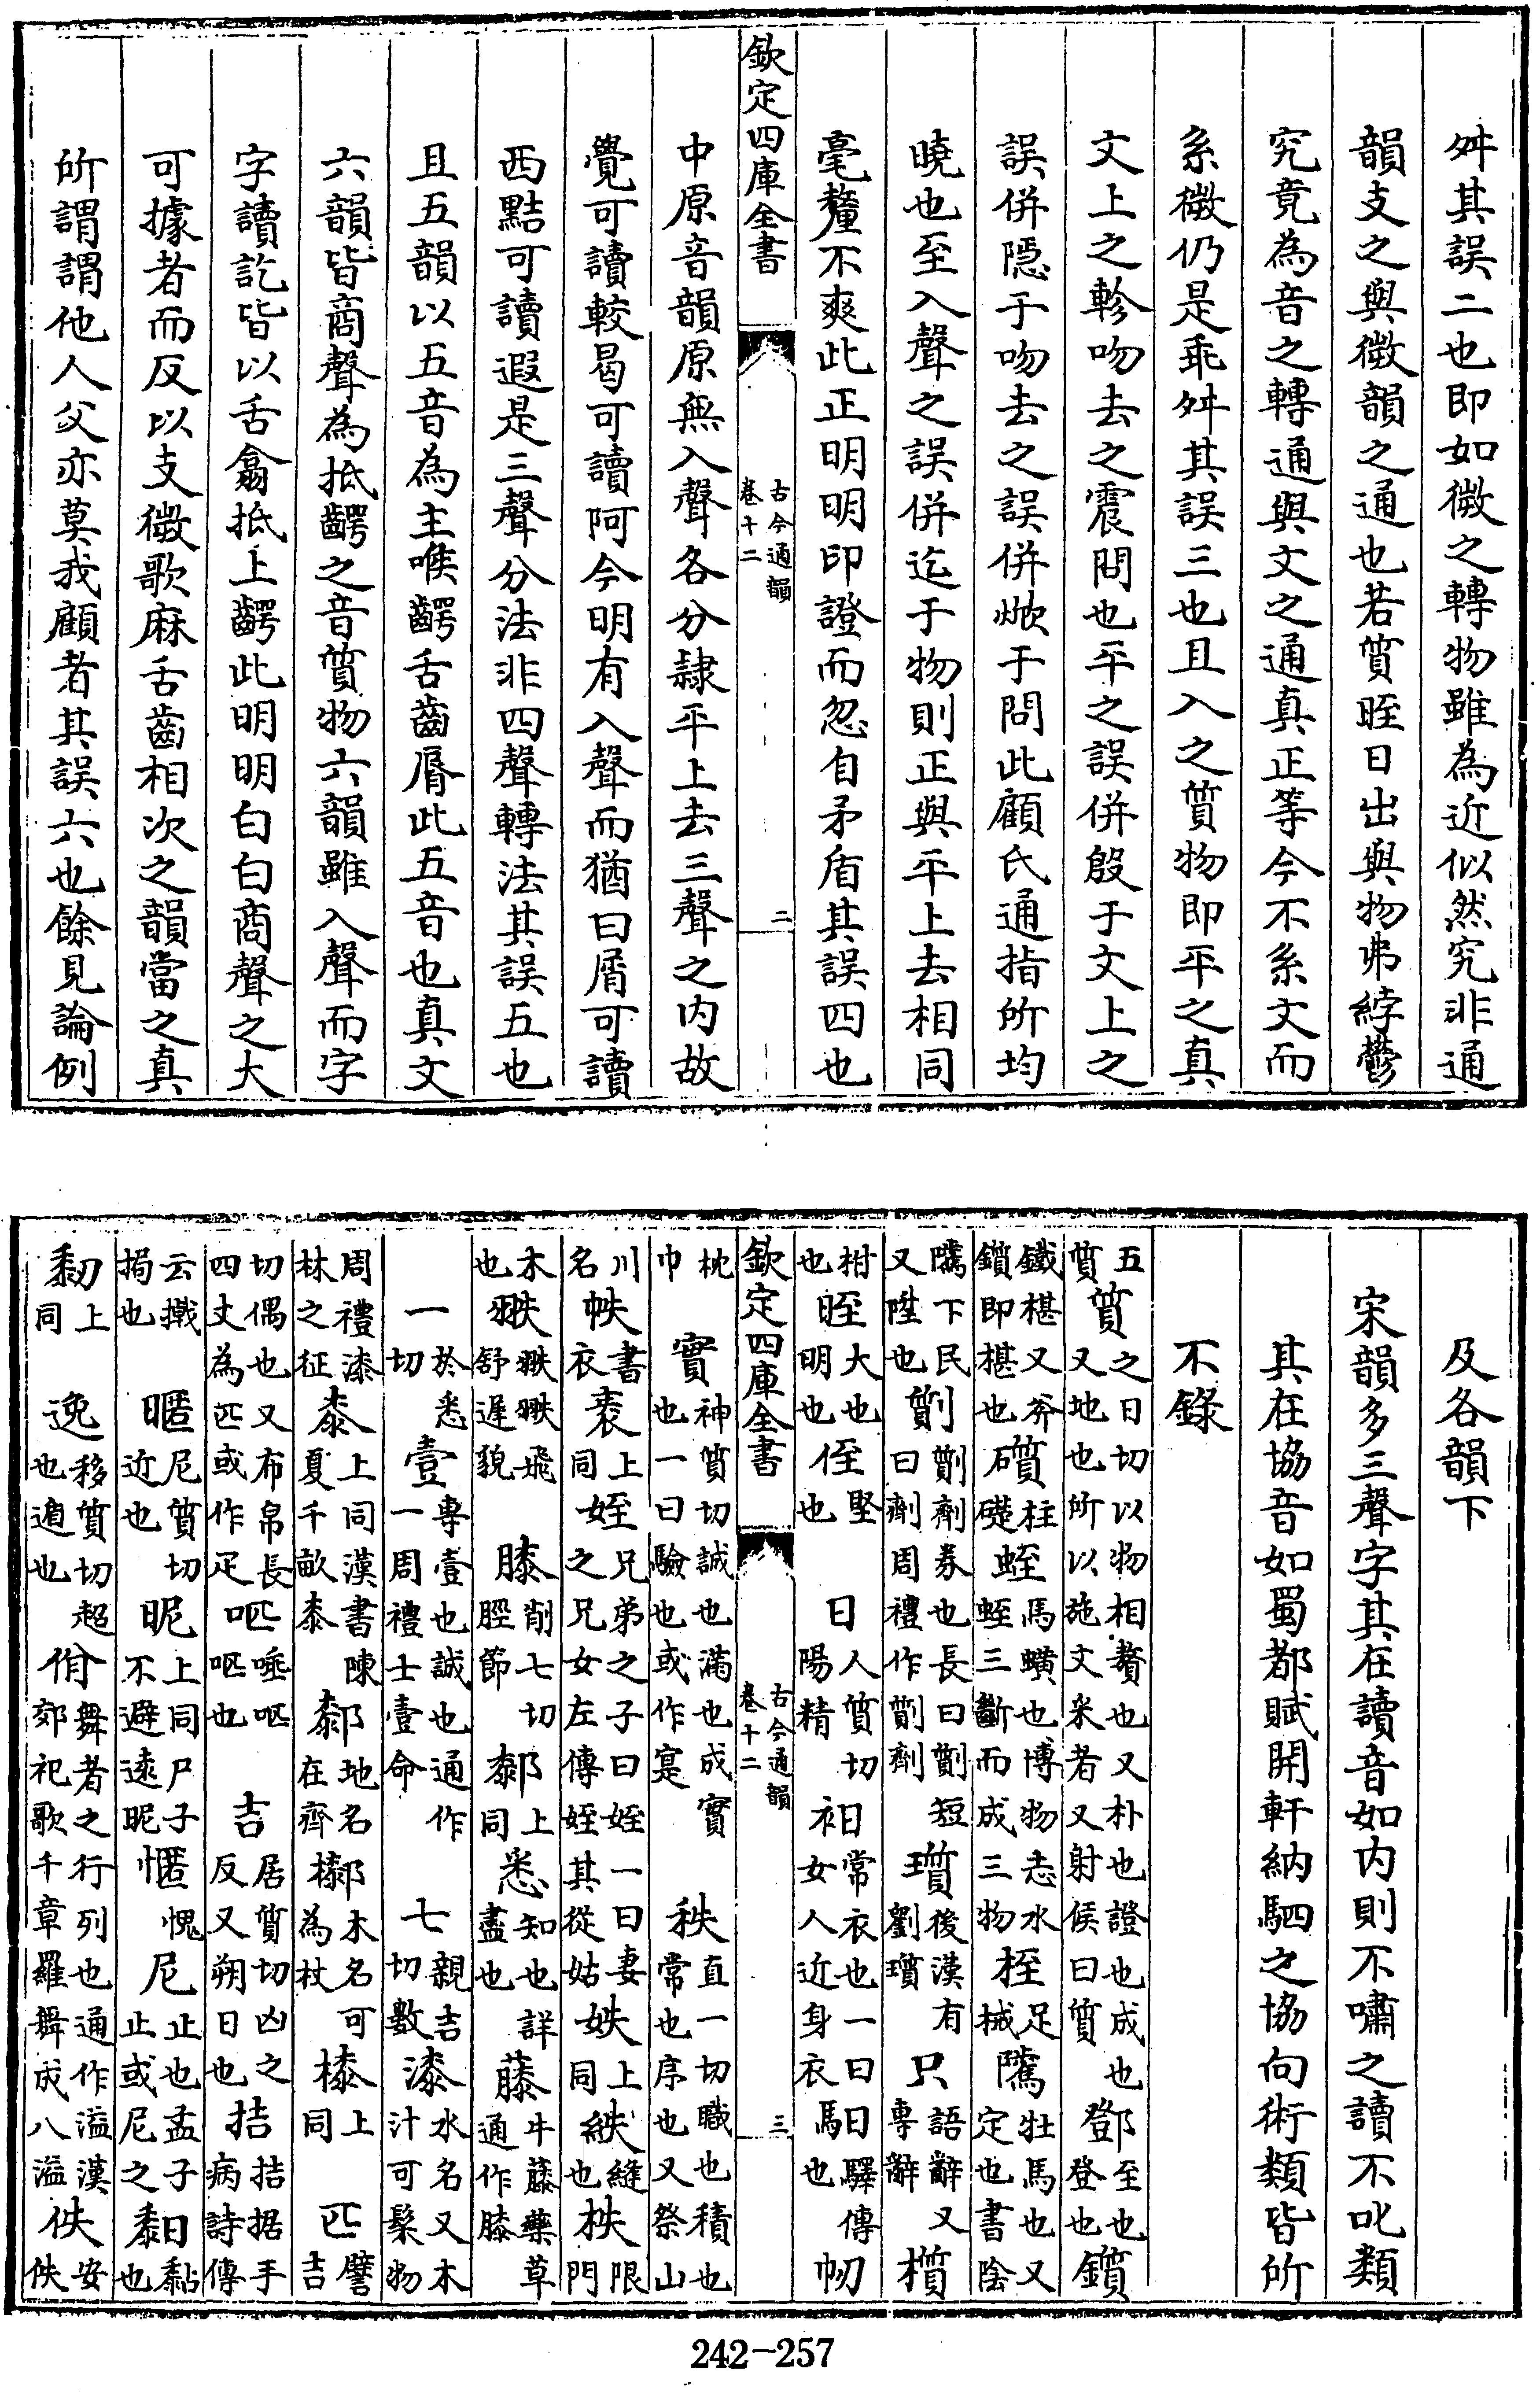 舛其誤二也即如微之轉物雖為近似然究非通
韻支之與微韻之通也若質晊日出與物弗綍鬱
究竟為音之轉通與文之通真正等今不系文而
系微仍是乖舛其誤三也且入之質物即平之真
文上之軫吻去之震問也平之誤併殷于文上之
誤併隠于吻去之誤併焮于問此顧氏通指所均
曉也至入聲之誤併迄于物則正與平上去相同
毫釐不爽此正明明印證而忽自矛盾其誤四也
欽定四庫全書
古今通韻
卷十二
二
中原音韻原無入聲各分隷平上去三聲之内故
覺可讀較曷可讀阿今明有入聲而猶曰屑可讀
西黠可讀遐是三聲分法非四聲轉法其誤五也
且五韻以五音為主喉齶舌齒脣此五音也真文
六韻皆商聲為抵齶之音質物六韻雖入聲而字
字讀訖皆以舌翕抵上齶此明明白白商聲之大
可據者而反以支微歌麻舌齒相次之韻當之真
所謂謂他人父亦莫我顧者其誤六也餘見論例
及各韻下
宋韻多三聲字其在讀音如内則不嘯之讀不叱類
其在協音如蜀都賦開軒納駟之協向術類皆所
不錄
五質質之日切以物相贅也又朴也證也成也又地也所以施文采者又射侯曰質至也登也鑕
鐵椹又斧鑕即椹也礩柱礎蛭馬蟥也博物志水蛭三斷而成三物桎足械騭牡馬也又定也書陰
隲下民又陞也劕劕劑券也長曰劕短曰劑周禮作劕劑瓆後漢有劉瓆只語辭又專辭櫍
柑也晊大也明也侄堅也日人質切陽精衵常衣也一曰女人近身衣馹驛傳也㠴
欽定四庫全書
古今通韻
卷十二
三
枕巾實神質切誠也滿也成實也一曰驗也或作寔秩直一切職也積也常也序也又祭山
川名帙書衣袠上同姪兄弟之子曰姪一曰妻之兄女左傳姪其從姑妷上同紩縫也柣限門
木也翐翐翐飛舒遲貌膝削七切脛節厀上同悉知也詳盡也藤牛藤藥草通作膝
一於悉切壹專壹也誠也通作一周禮士壹命七親吉切數漆水名又木汁可髹物
周禮漆林之征桼上同漢書陳夏千畝桼䣛地名在齊木名可為杖㯃上同匹譬吉
切偶也又布帛長四丈為匹或作疋㕧唾㕧㕧也吉居質切凶之反又朔日也拮拮据手病詩傳
云撠挶也暱尼質切近也昵上同尸子不避遠昵㥾愧尼止也孟子止或尼之䵒黏也
䵑上同逸移質切超也遁也佾舞者之行列也通作溢漢郊祀歌千章羅舞成八溢佚安佚
242-257